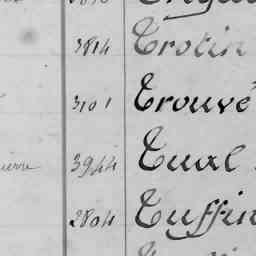 3814 Trotin
3101 Trouvé
3944 Tual
2804 Tuffin